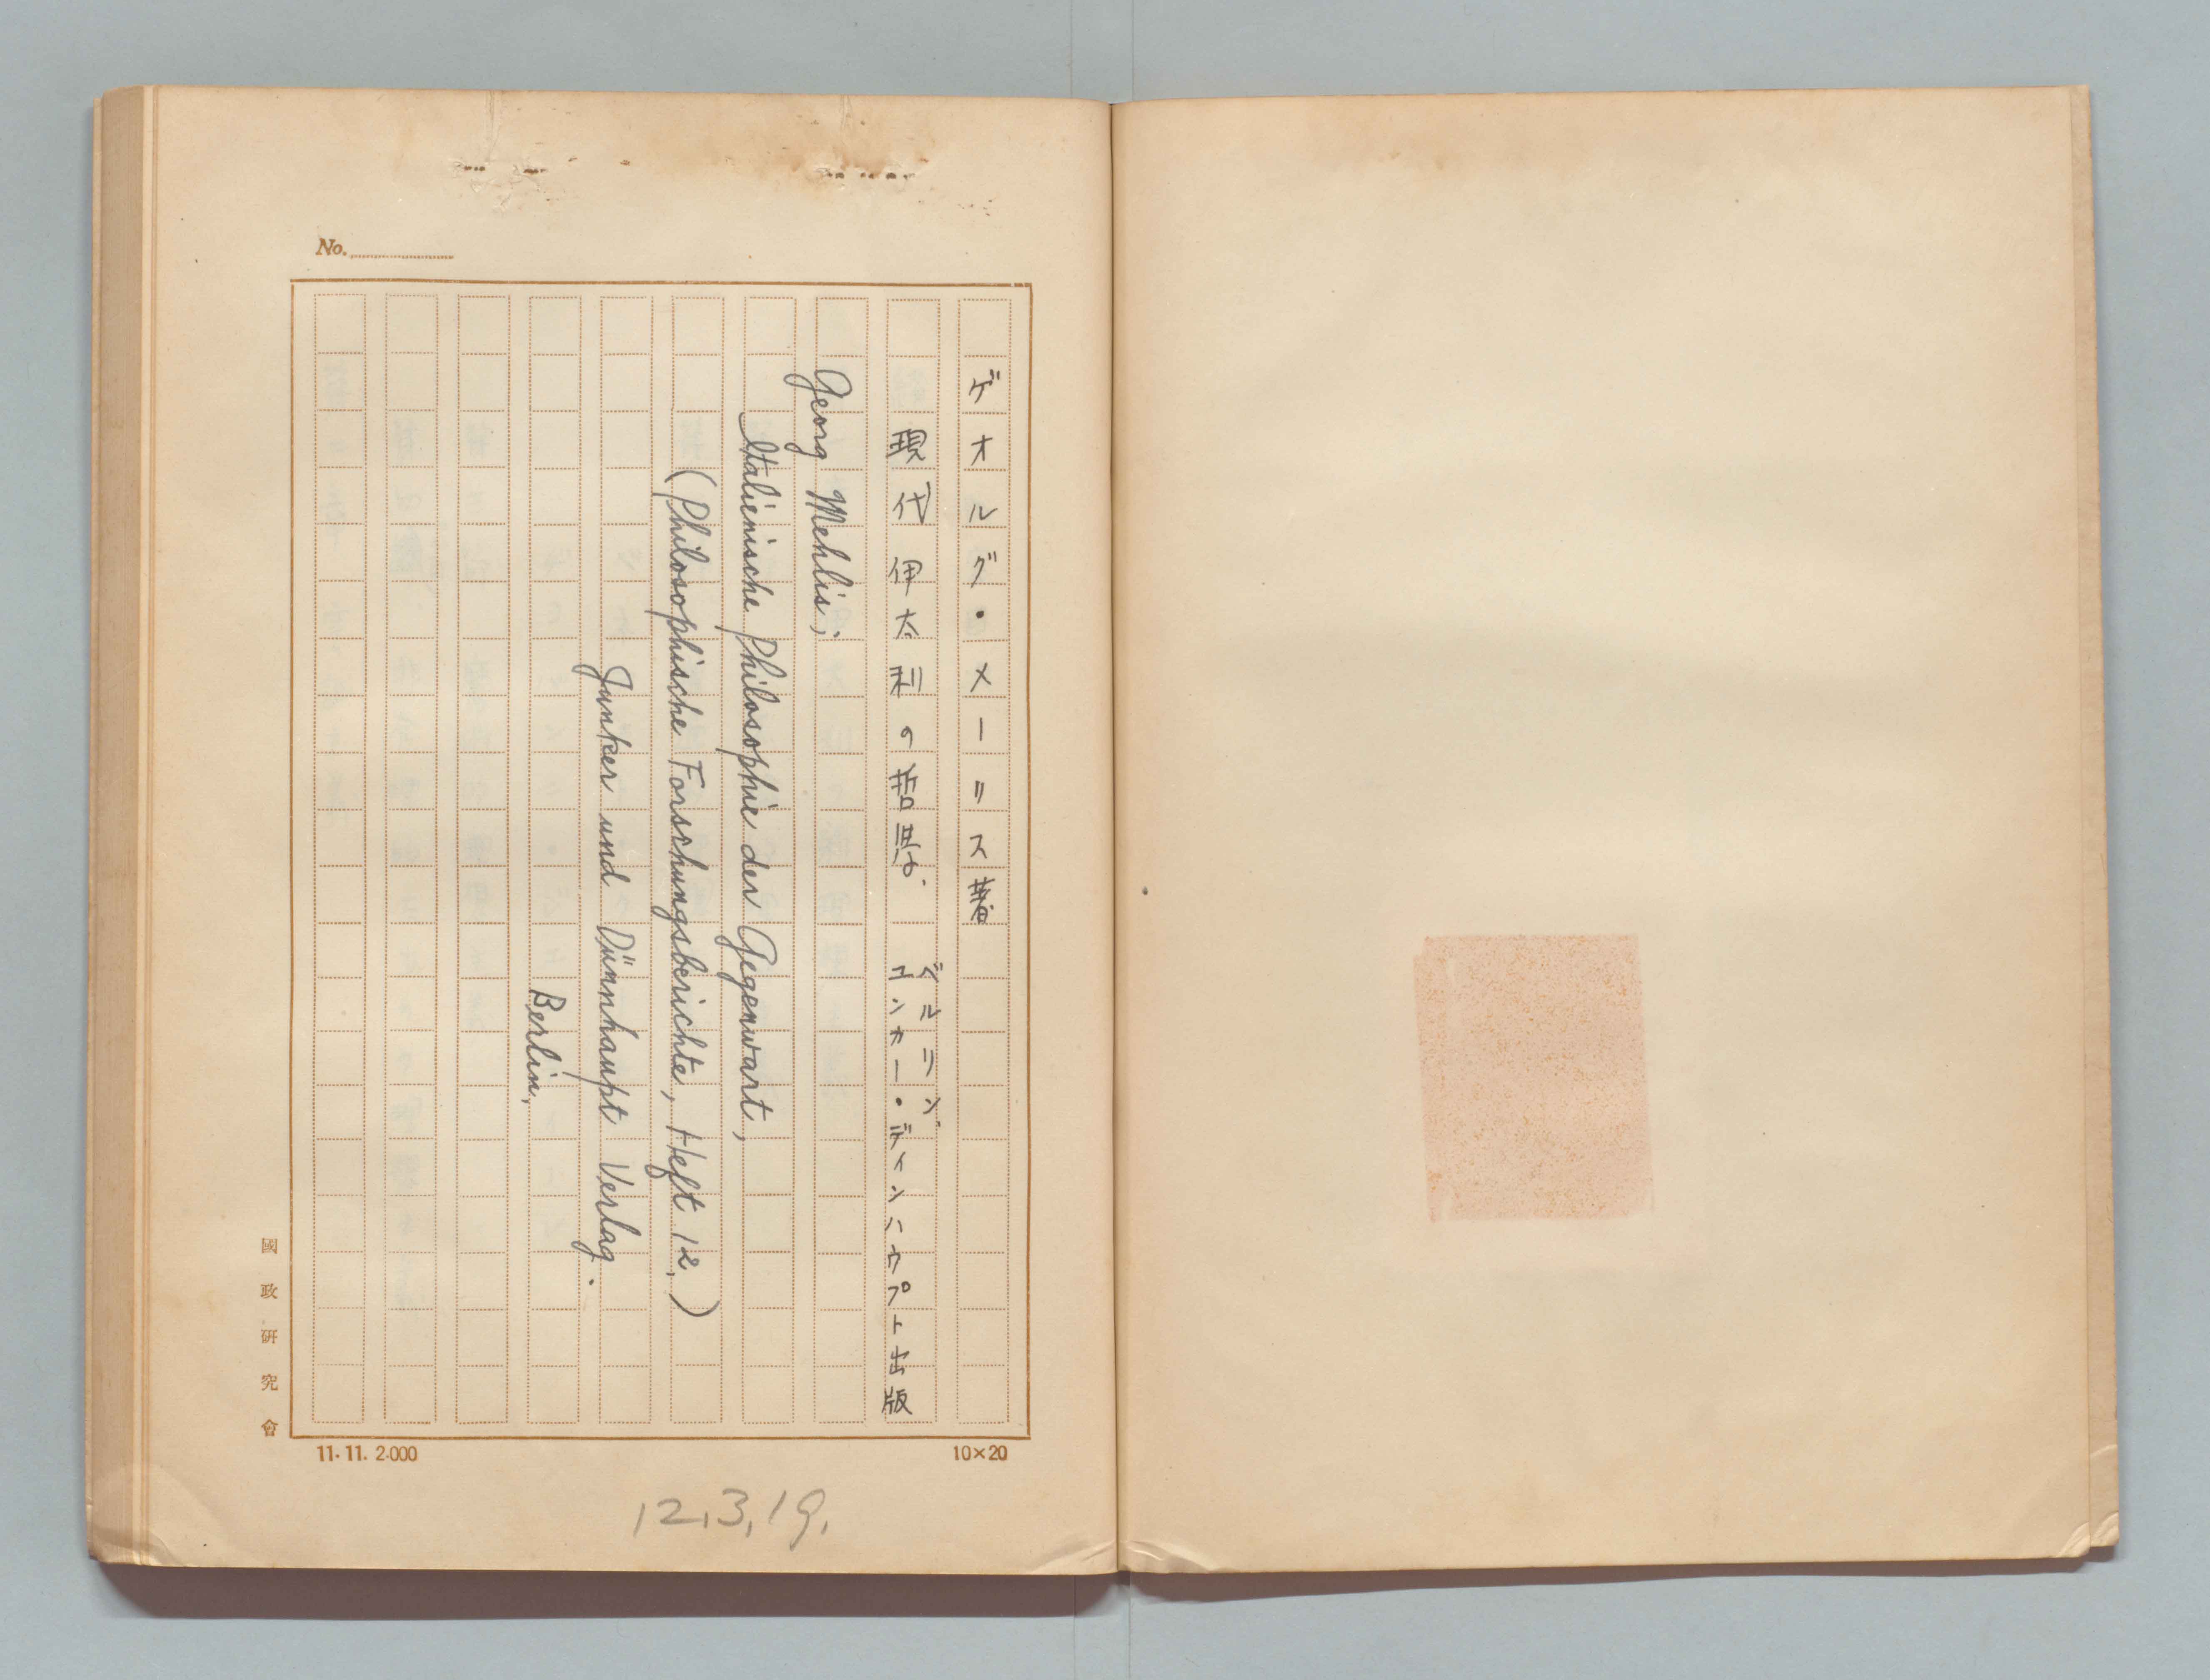 No.
ゲオルグ・メーリス著
現代伊太利の哲学. ベルリン.
ユンカー・ディンハウプト出版
Georg Mehlis;
Italienische Philosophie der Gegenwart,
(Philosophische Forschungsberichte, Heft 12,)
Junker und Dünnhaupt Verlag.
Berlin,
國政研究會
11.11. 2.000
10×20
12.3.19.